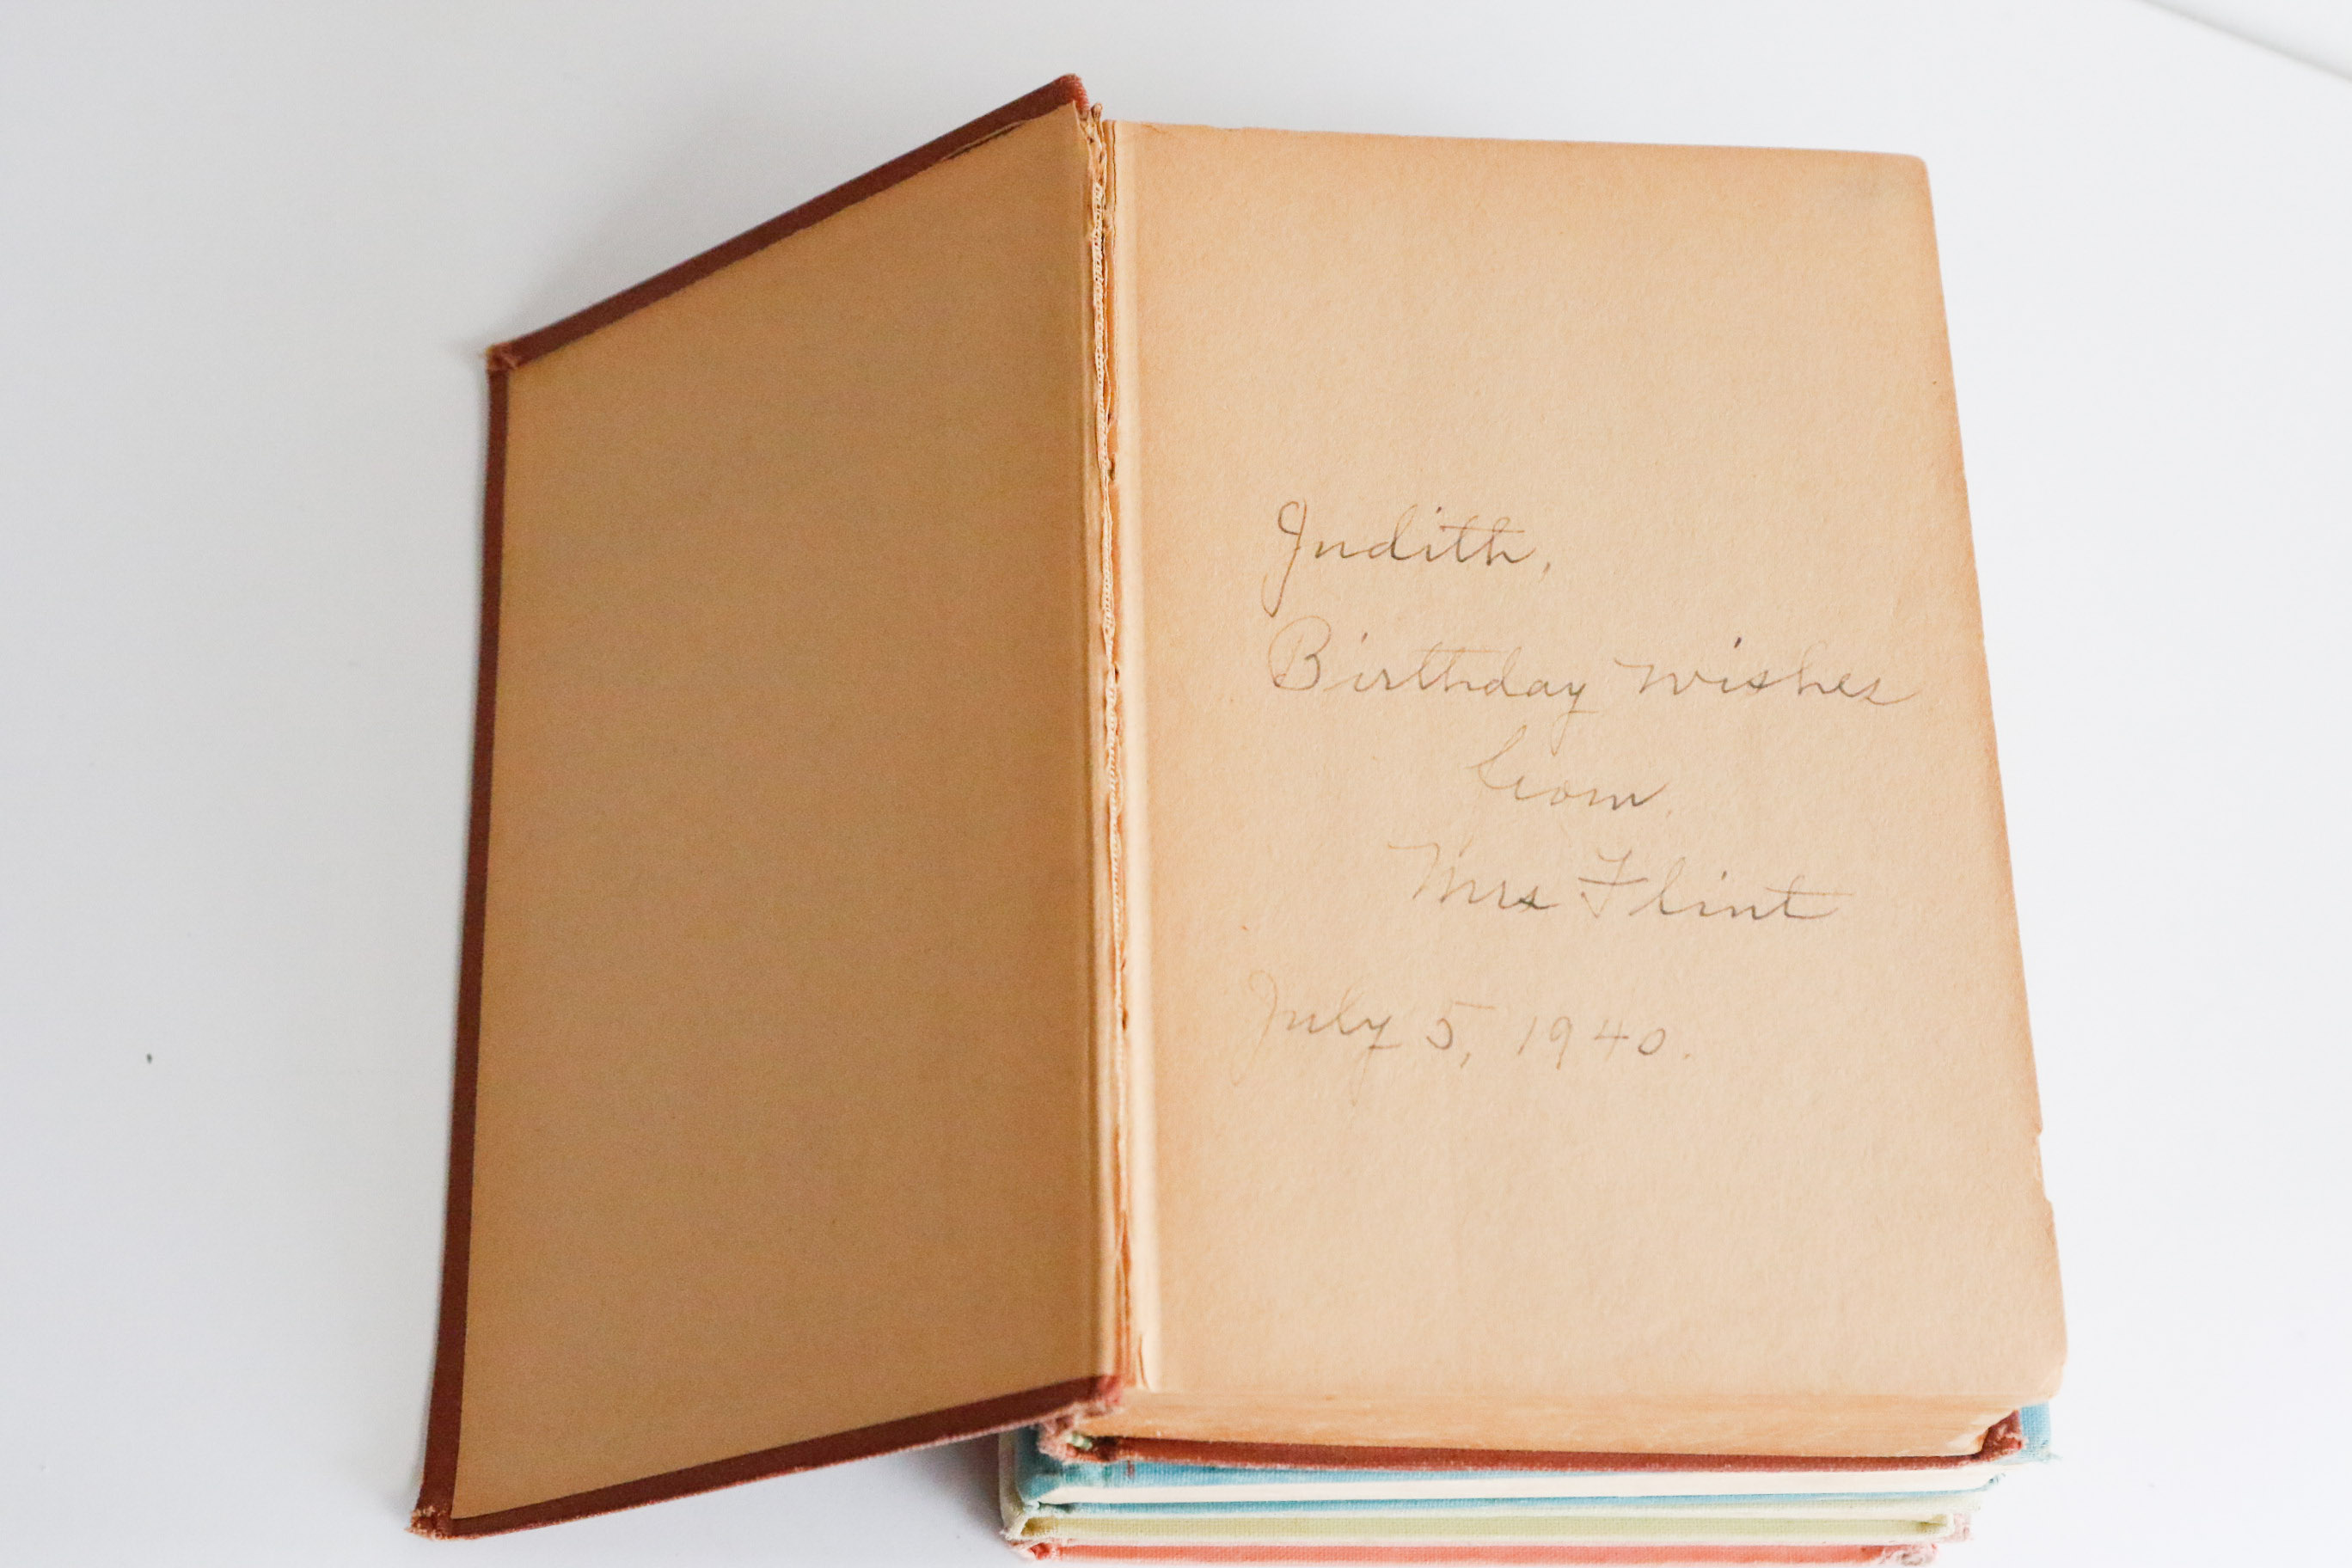 Judith,
Birthday wishes
from
Mrs Flint
July 5, 1940.